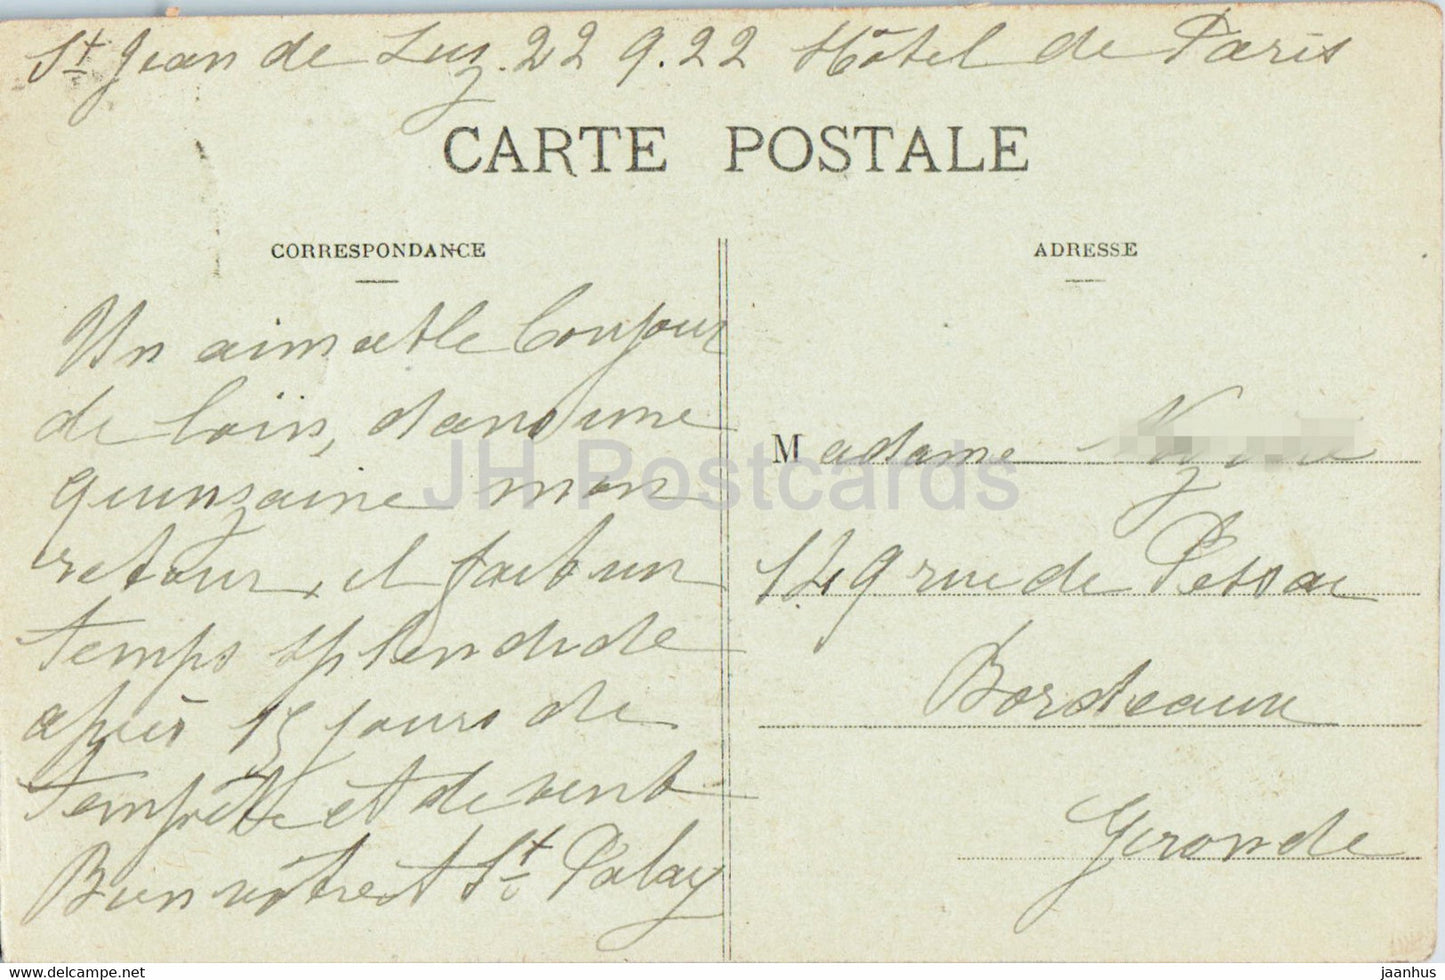 St Jean de Luz. 22 9. 22 Hôtel de Paris
CARTE POSTALE
CORRESPONDANCE
Un aimable bonjour
de loin, dans une
quinzaine mon
retour, il fait un
temps splendide
après 15 jours de
tempête et de vent
Bien vôtre St Palay
ADRESSE
Madame
149 rue de Pessac
Bordeaux
Gironde
JH Postcards
www.hippostcard.com
jaanhus